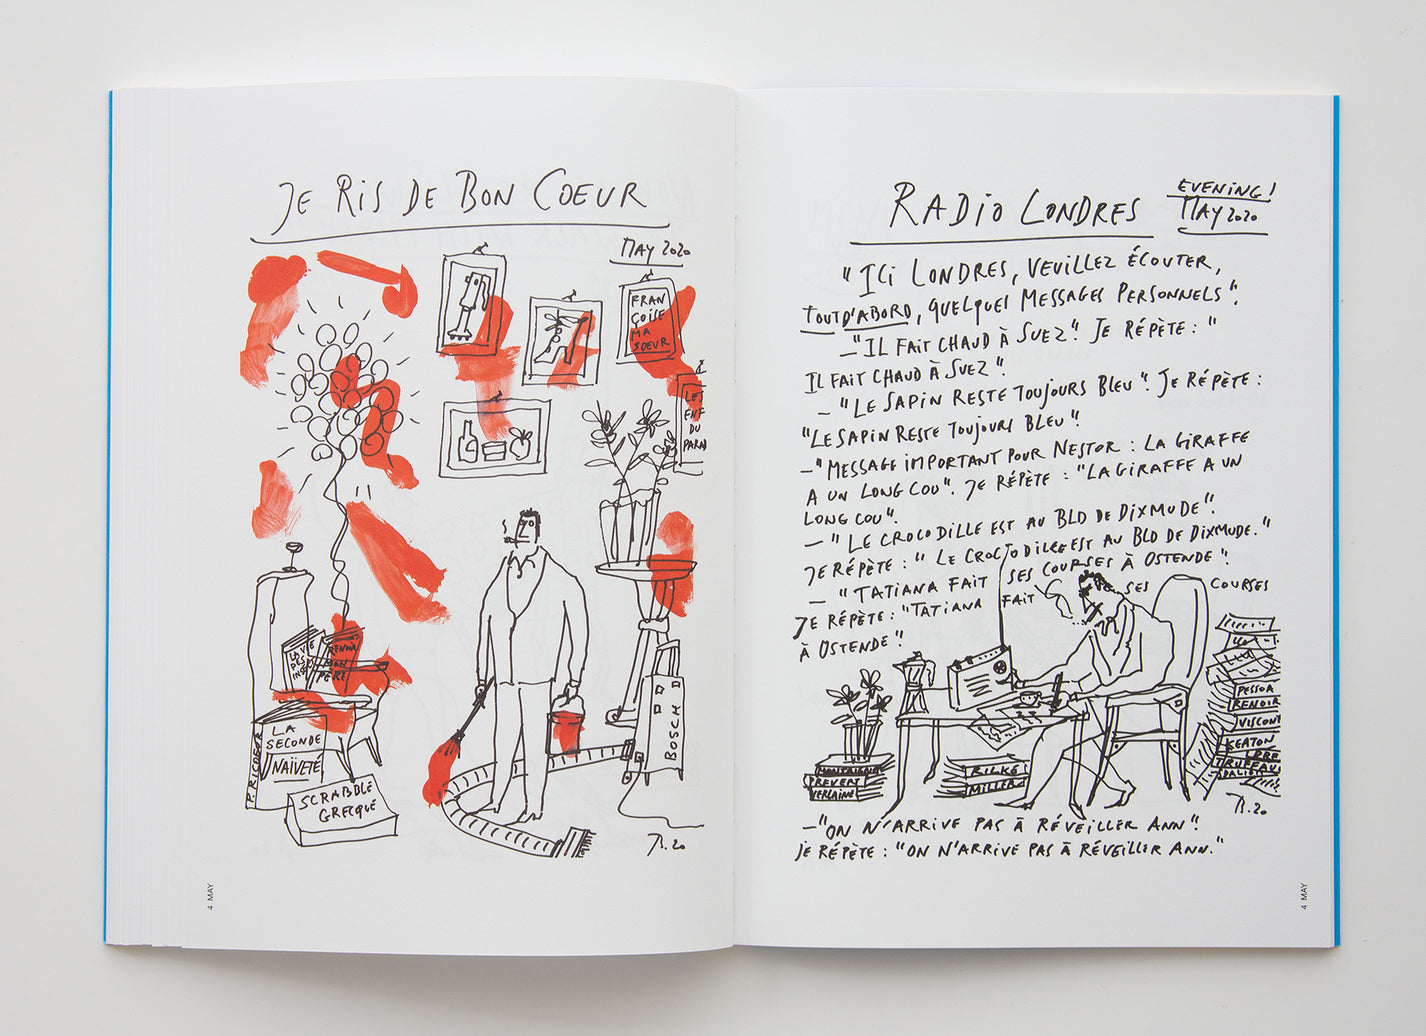 JE RIS DE BON COEUR
MAY 2020
FRAN
ÇOISE
MA
SOEUR
LES
ENF
DU
PARA
LA VIE
RENOIR
MON
PÈRE
P. RICOEUR
LA
SECONDE
NAÏVETÉ
SCRABBLE
GRECQUE
BOSCH
B.20
4 MAY
RADIO LONDRES
EVENING!
MAY 2020
"ICI LONDRES, VEUILLEZ ÉCOUTER,
TOUT D'ABORD, QUELQUES MESSAGES PERSONNELS".
– "IL FAIT CHAUD À SUEZ". JE RÉPÈTE : "
IL FAIT CHAUD À SUEZ".
– "LE SAPIN RESTE TOUJOURS BLEU". JE RÉPÈTE :
"LE SAPIN RESTE TOUJOURS BLEU".
– "MESSAGE IMPORTANT POUR NESTOR : LA GIRAFFE
A UN LONG COU". JE RÉPÈTE : "LA GIRAFFE A UN
LONG COU".
– "LE CROCODILLE EST AU BLD DE DIXMUDE".
JE RÉPÈTE : "LE CROCODILLE EST AU BLD DE DIXMUDE."
– "TATIANA FAIT SES COURSES À OSTENDE".
JE RÉPÈTE : "TATIANA FAIT SES COURSES
À OSTENDE".
MONTAIGNE
PREVERT
VERLAINE
RILKE
MILLER
PESSOA
RENOIR
VISCONT
KEATON
TRUFFAU
B.20
– "ON N'ARRIVE PAS À RÉVEILLER ANN".
JE RÉPÈTE : "ON N'ARRIVE PAS À RÉVEILLER ANN."
4 MAY